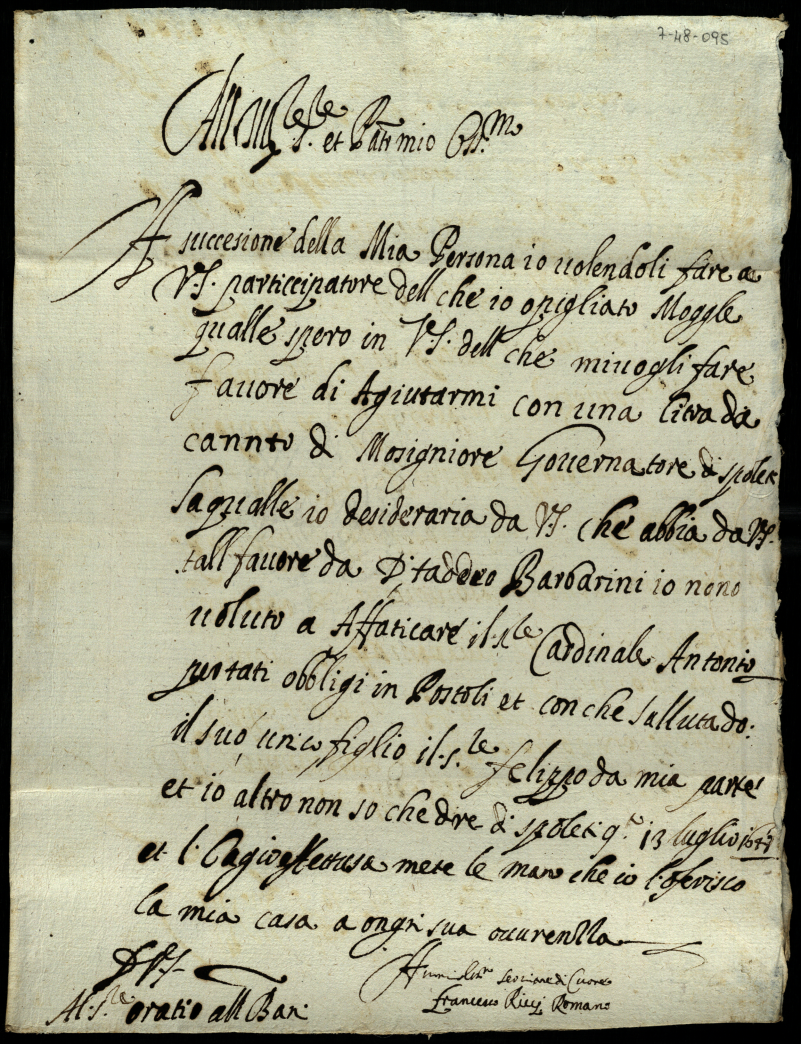 7-48-095
All M.to Ill.re S.re et Pat.n mio Oss.mo
A succesione della Mia Persona io uolendoli fare a
V.S. participatore dell che io o pigliato Moggle
qualle spero in V.S. dell che mi uogli fare
fauore di Agiutarmi con una litra da
cannto di Mosigniore Gouernatore di spoleti
la qualle io desideraria da V.S. che abbia da V.S.
tall fauore da D. taddeo Barbarini io nono
uoluto a Affaticare il s.le Cardinale Antonio
obbligi in et con che salluta do:
il suo unico figlio il s.le felippo da mia parte
et io altro non so che dre di spoleti q.o 13 luglio
et l. mete le mano che io l'oferisco
la mia casa a ongni sua
D V.S.
Al S.le oratio all Bani
seruitore di Cuore
Francesco Ricci Romano